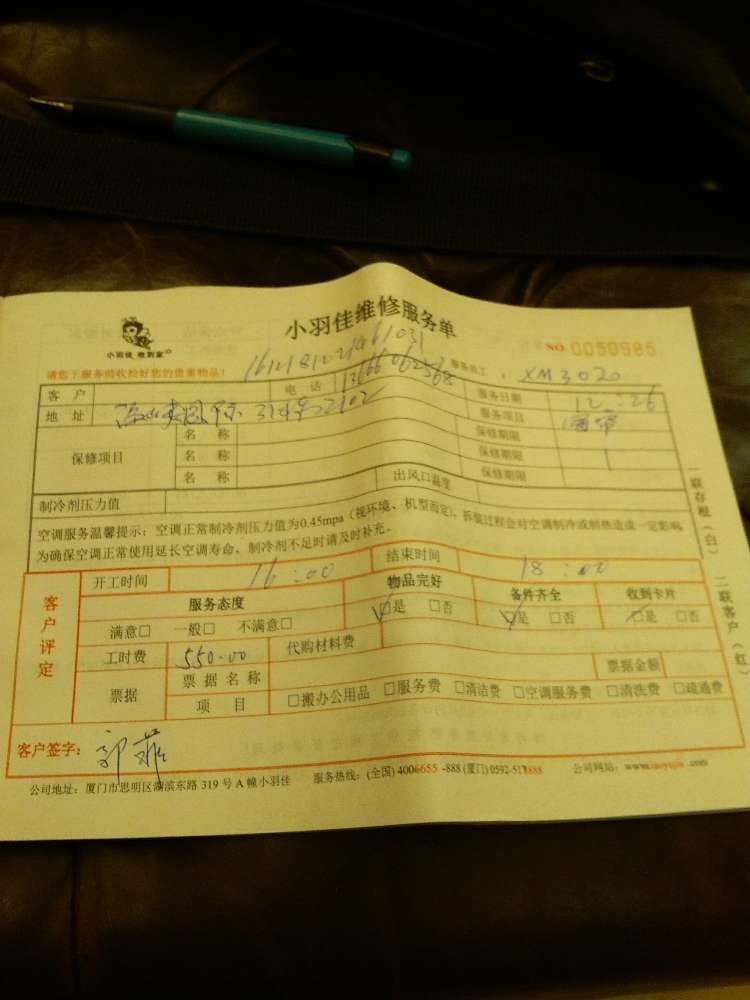 小羽佳维修服务单
小羽佳 收到家
NO. 0050985
请您于服务前收拾好您的贵重物品!
服务员工: XM3020
客户 电话 13666062568 服务日期 12:26
地址 314号2102 服务项目
保修项目 名称 保修期限
名称 保修期限
名称 保修期限
制冷剂压力值 出风口温度
空调服务温馨提示:空调正常制冷剂压力值为0.45mpa(视环境、机型而定),拆装过程会对空调制冷或制热造成一定影响,
为确保空调正常使用延长空调寿命,制冷剂不足时请及时补充。
一联存根(白) 二联客户(红)
客户评定
开工时间 16:00 结束时间 18:00
服务态度 物品完好 备件齐全 收到卡片
满意□ 一般□ 不满意□ □是 □否 □是 □否 □是 □否
工时费 550.00 代购材料费
票据 票据名称 票据金额
项目 □搬办公用品 □服务费 □清洁费 □空调服务费 □清洗费 □疏通费
客户签字:
公司地址:厦门市思明区湖滨东路 319 号 A 幢小羽佳 服务热线:(全国) 4006655 -888 (厦门) 0592-517888 公司网站:www.xiaoyujia .com